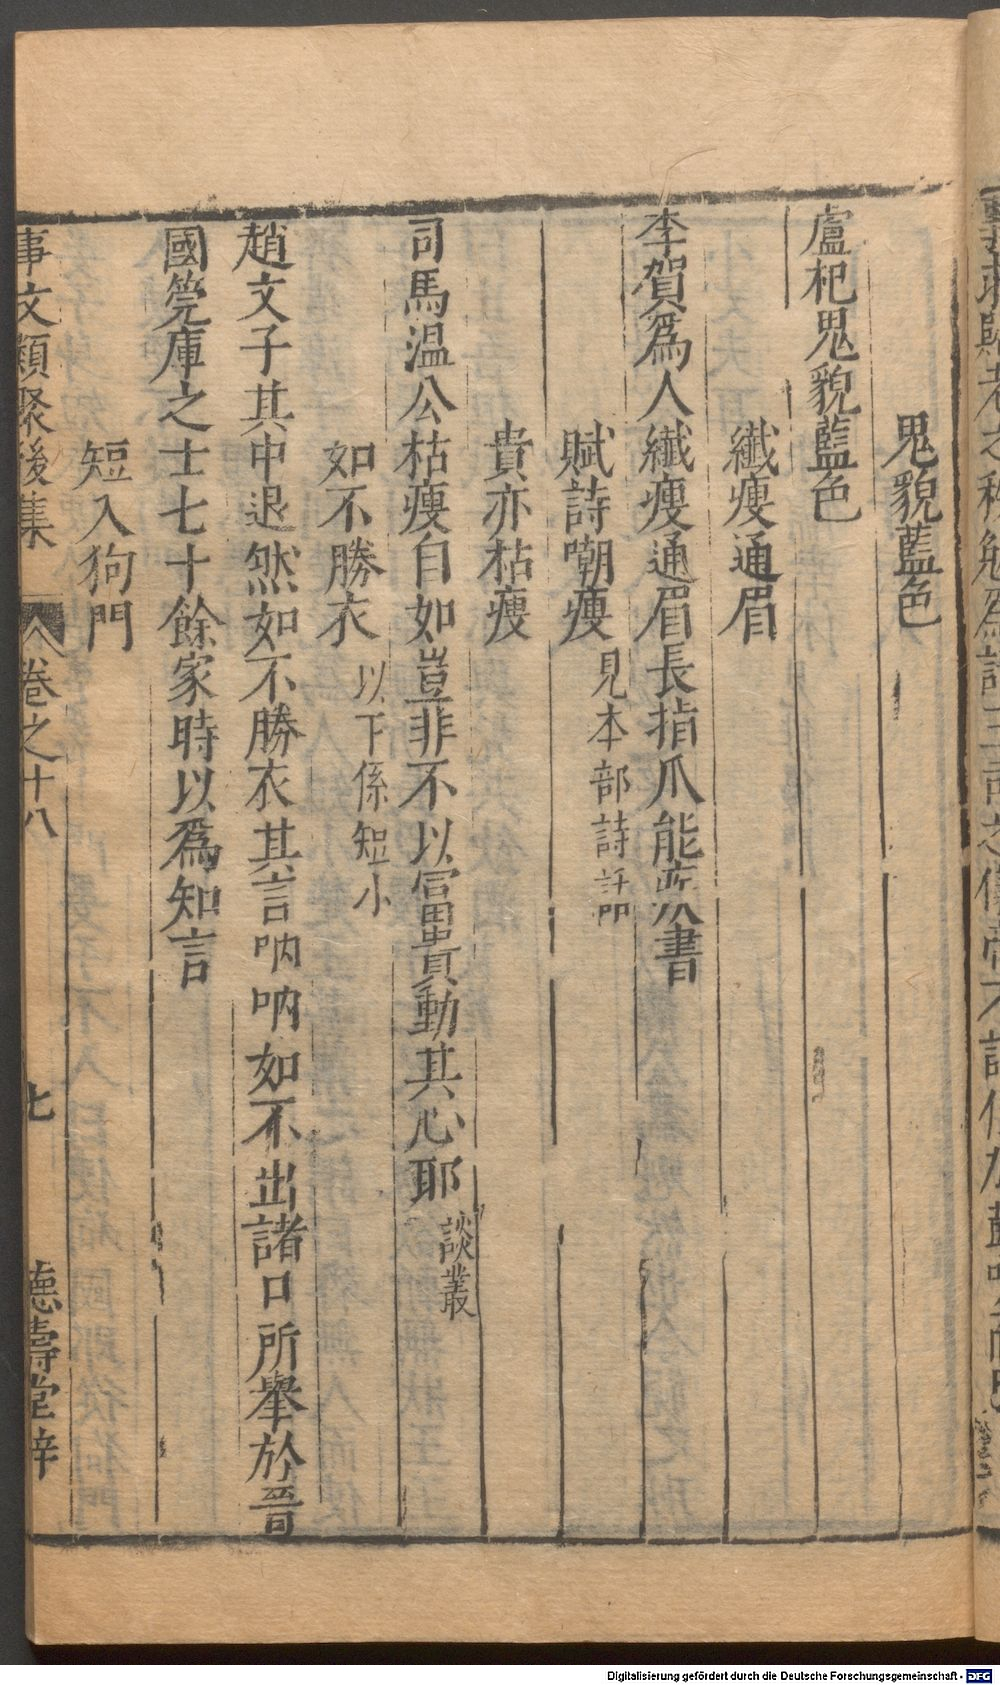 鬼貌藍色
盧杞鬼貌藍色
纖瘦通眉
李賀爲人纖瘦通眉長指爪能疾書
賦詩嘲瘦 見本部詩話
貴亦枯瘦
司馬温公枯瘦自如豈非不以富貴動其心耶 談叢
如不勝衣 以下係短小
趙文子其中退然如不勝衣其言吶吶如不出諸口所舉於晉
國筦庫之士七十餘家時以爲知言
短入狗門
事文類聚後集 卷之十八 七 德壽堂梓
Digitalisierung gefördert durch die Deutsche Forschungsgemeinschaft - DFG